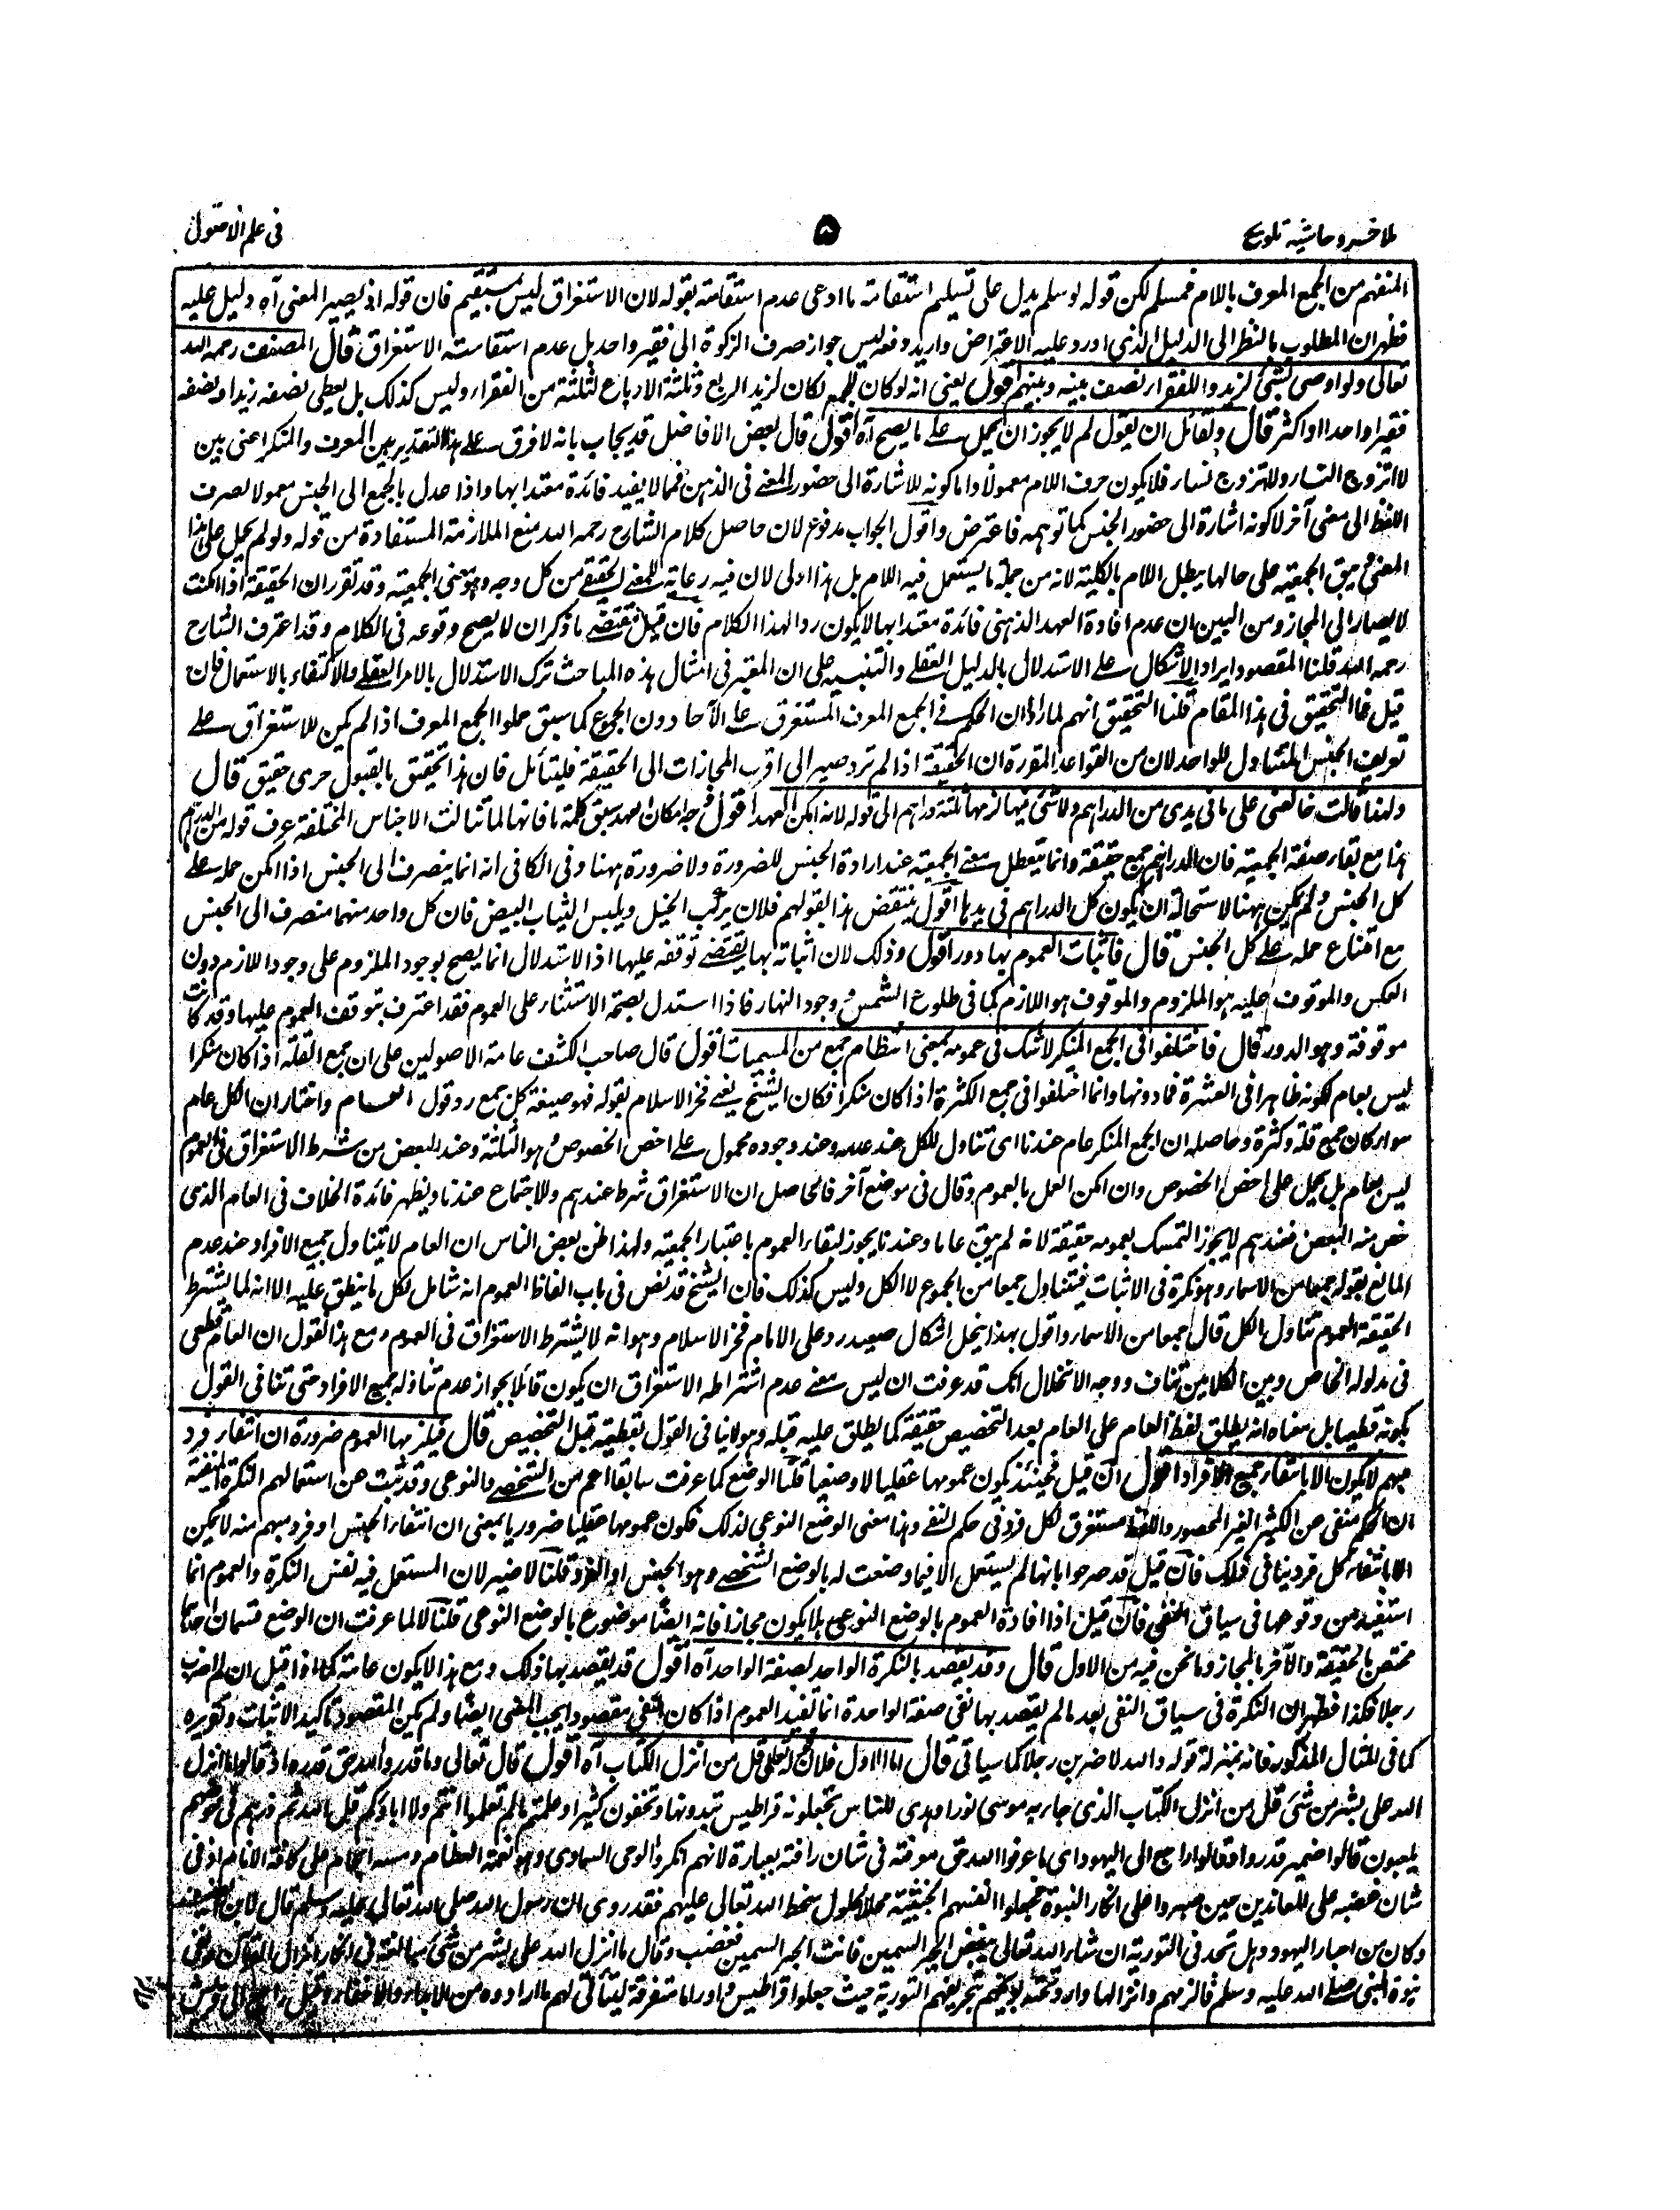 ملا خسرو حاشیہ تلویح ۵ فی علم الاصول
المنفهم من الجمع المعرف باللام فمسلم لكن قوله لو سلم يدل على تسليم استقامته ما ادعى عدم استقامته بقوله لان الاستغراق ليس بمستقيم فان قوله اذ يصير المعنى آه دليل عليه
فظهر ان المطلوب بالنظر الى الدليل الذى اورد عليه الاعتراض واريد دفعه ليس جواز صرف الزكوة الى فقير واحد بل عدم استقامته الاستغراق قال المصنف رحمه الله
تعالى ولو اوصى بشئ لزيد وللفقراء نصف بينه وبينهم اقول يعنى انه لو كان للجمع لكان لزيد الربع وثلثة الارباع لثلثة من الفقراء وليس كذلك بل يعطى نصفه زيدا ونصفه
فقيرا واحدا او اكثر قال ولقائل ان يقول لم لا يجوز ان يحمل على ما يصح آه اقول قال بعض الافاضل قد يجاب بانه لا فرق على هذا التقدير بين المعرف والمنكر اعنى بين
لا اتزوج النساء ولا اتزوج نساء فلا يكون حرف اللام معمولا واما كونه للاشارة الى حضور المعنى فى الذهن فما لا يفيد فائدة معتدا بها واذا عدل بالجمع الى الجنس معمولا لصرف
اللفظ الى معنى آخر لا كونه اشارة الى حضور الجنس كما توهمه فاعترض واقول الجواب مدفوع لان حاصل كلام الشارح رحمه الله منع الملازمة المستفادة من قوله ولو لم يحمل على هذا
المعنى وبقى الجمعية على حالها يبطل اللام بالكلية لانه من جملة ما يستعمل فيه اللام بل هذا اولى لان فيه رعاية للمعنى الحقيقى من كل وجه وهو معنى الجمعية وقد تقرر ان الحقيقة اذا امكنت
لا يصار الى المجاز ومن البين ان عدم افادة العهد الذهنى فائدة معتدا بها لا يكون ردا لهذا الكلام فان قيل مقتضى ما ذكر ان لا يصح وقوعه فى الكلام وقد اعترف الشارح
رحمه الله قلنا المقصود ايراد الاشكال على الاستدلالى بالدليل العقلى والتنبيه على ان المعتبر فى امثال هذه المباحث ترك الاستدلال بالامر العقلى والاكتفاء بالاستعمال فان
قيل فما التحقيق فى هذا المقام قلنا التحقيق انهم لما رأوا ان الحكم فى الجمع المعرف المستغرق على الآحاد دون المجموع كما سبق حملوا الجمع المعرف اذا لم يكن للاستغراق على
تعريف الجنس المتناول للواحد لان من القواعد المقررة ان الحقيقة اذا لم ترد صير الى اقرب المجازات الى الحقيقة فليتأمل فان هذا التحقيق بالقبول حرى حقيق قال
ولهذا قالت خالعنى على ما فى يدى من الدراهم ولا شئ فيها لزمها ثلثة دراهم الى قوله لانه امكن العهد اقول وجه امكان العهد سبق كلمة ما فانها لما تناولت الاجناس المختلفة عرف قوله من الدراهم
هذا مع بقاء صفة الجمعية فان الدراهم جمع حقيقة وانما يتعطل معنى الجمعية عند ارادة الجنس للضرورة ولا ضرورة ههنا وفى الكافى انه انما ينصرف الى الجنس اذا امكن حمله على
كل الجنس ولم يمكن ههنا لاستحالة ان يكون كل الدراهم فى يدها اقول ينتقض هذا بقولهم فلان يركب الخيل ويلبس الثياب البيض فان كل واحد منهما منصرف الى الجنس
مع امتناع حمله على كل الجنس قال فاثبات العموم بها دور اقول وذلك لان اثباته بها يقتضى توقفه عليها اذ الاستدلال انما يصح بوجود الملزوم على وجود اللازم دون
العكس والموقوف عليه هو الملزوم والموقوف هو اللازم كما فى طلوع الشمس ووجود النهار فاذا استدل بصحة الاستثناء على العموم فقد اعترف بتوقف العموم عليها وقد كانت
موقوفة وهو الدور قال فاختلفوا فى الجمع المنكر لا شك فى عمومه بمعنى انتظام جمع من المسميات اقول قال صاحب الكشف عامة الاصوليين على ان جمع القلة اذا كان منكرا
ليس بعام لكونه ظاهرا فى العشرة فما دونها وانما اختلفوا فى جمع الكثرة اذا كان منكرا فكان الشيخ يعنى فخر الاسلام بقوله فهو صيغة كل جمع رد قول العام واختار ان الكل عام
سواء كان جمع قلة وكثرة وحاصله ان الجمع المنكر عام عندنا اى تناول للكل عند عدمه وعند وجوده محمول على اخص الخصوص وهو الثلثة وعند البعض من شرط الاستغراق فى العموم
ليس بعام بل يحمل على اخص الخصوص وان امكن العمل بالعموم وقال فى موضع آخر فالحاصل ان الاستغراق شرط عندهم والاجتماع عندنا ويظهر فائدة الخلاف فى العام الذى
خص منه البعض فعندهم لا يجوز التمسك بعمومه حقيقة لانه لم يبق عاما وعندنا يجوز لبقاء العموم باعتبار الجمعية ولهذا ظن بعض الناس ان العام لا يتناول جميع الافراد عند عدم
المانع بقوله جمعا من الاسماء وهو نكرة فى الاثبات فيتناول جمعا من الجموع لا الكل وليس كذلك فان الشيخ قد نص فى باب الفاظ العموم انه شامل لكل ما ينطق عليه الا انه لما لم يشترط
الحقيقة العموم تناول الكل قال جمعا من الاسماء واقول بهذا ينحل اشكال صعب يرد على الامام فخر الاسلام وهو انه لا يشترط الاستغراق فى العموم ومع هذا القول ان العام قطعى
فى مدلوله كالخاص وبين الكلامين تناف ووجه الانحلال انك قد عرفت ان ليس معنى عدم اشتراطه الاستغراق ان يكون قائلا بجواز عدم تناوله جميع الافراد حتى تنافى القول
بكونه قطعيا بل معناه انه يطلق لفظ العام على العام بعد التخصيص حقيقة كما يطلق عليه قبله وهو لا ينافى القول بقطعيته قبل التخصيص قال فيلزمها العموم ضرورة ان انتفاء فرد
مبهم لا يكون الا بانتفاء جميع الافراد اقول ان قيل فحينئذ يكون عمومها عقليا لا وضعيا قلنا الوضع كما عرفت سابقا اعم من الشخصى والنوعى وقد ثبت من استعمالهم النكرة المنفية
ان الحكم منفى عن الكثير الغير المحصور واللفظ مستغرق لكل فرد فى حكم النفى وهذا معنى الوضع النوعى لذلك فكون عمومها عقليا ضروريا بمعنى ان انتفاء الجنس او فرد مبهم منه لا يمكن
الا بانتفاء كل فرد ينافى ذلك فان قيل قد صرحوا بانها لم يستعمل الا فيما وضعت له بالوضع الشخصى وهو الجنس او الفرد قلنا لا ضير لان المستعمل فيه نفس النكرة والعموم انما
استفيد من وقوعها فى سياق النفى فان قيل اذا افادة العموم بالوضع النوعى هلا يكون مجازا فانه ايضا موضوع بالوضع النوعى قلنا لا لما عرفت ان الوضع قسمان احدهما
مختص بالحقيقة والآخر بالمجاز وما نحن فيه من الاول قال وقد يقصد بالنكرة الواحد بصفة الواحد آه اقول قد يقصد بها ذلك ومع هذا لا يكون عامة كما اذا قيل ان لم اضرب
رجلا فكذا فظهر ان النكرة فى سياق النفى بعد ما لم يقصد بها نفى صفة الواحدة انما تفيد العموم اذا كان النفى مقصودا بحسب المعنى ايضا ولم يكن المقصود تاكيد الاثبات وتقريره
كما فى المثال المذكور فانه بمنزلة قوله والله لاضربن رجلا كما سياتى قال اما الاول فلان قوله تعالى قل من انزل الكتاب آه اقول قال تعالى وما قدروا الله حق قدره اذ قالوا ما انزل
الله على بشر من شئ قل من انزل الكتاب الذى جاء به موسى نورا وهدى للناس تجعلونه قراطيس تبدونها وتخفون كثيرا وعلمتم ما لم تعلموا انتم ولا اباؤكم قل الله ثم ذرهم فى خوضهم
يلعبون قالوا ضمير قدروا وقالوا راجع الى اليهود اى ما عرفوا الله حق معرفته فى شان رافته بعباده لانهم انكروا الوحى السماوى وهو نعمة العظام على كافة الانام او فى
شان غضبه على المعاندين حين اصروا على انكار النبوة فجعلوا انفسهم الخبيثة محلا لحلول سخط الله تعالى عليهم فقد روى ان رسول الله صلى الله تعالى عليه وسلم قال لابن
وكان من احبار اليهود وهل تجد فى التورية ان شاء الله تعالى يبغض الحبر السمين فانت الحبر السمين فغضب وقال ما انزل الله على بشر من شئ مبالغة فى انكار انزال القرآن ونفى
نبوة النبى صلى الله عليه وسلم فالزمهم وانزالها وادرج تحته توبيخهم بتحريفهم التورية حيث جعلوا قراطيس واوراقا متفرقة ليتأتى لهم ما ارادوه من الابداء والاخفاء وقيل راجع الى قريش